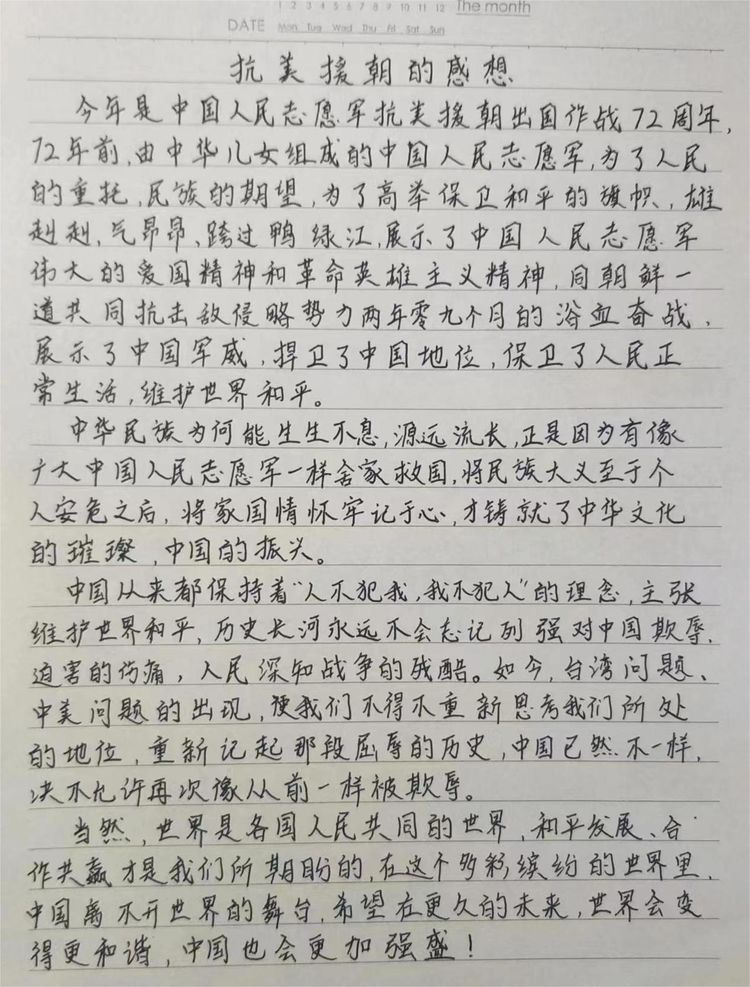 1 2 3 4 5 6 7 8 9 10 11 12 The month
DATE Mon Tue Wed Thu Fri Sat Sun
抗美援朝的感想
今年是中国人民志愿军抗美援朝出国作战72周年,
72年前,由中华儿女组成的中国人民志愿军,为了人民
的重托,民族的期望,为了高举保卫和平的旗帜,雄
赳赳,气昂昂,跨过鸭绿江,展示了中国人民志愿军
伟大的爱国精神和革命英雄主义精神,同朝鲜一
道共同抗击敌侵略势力两年零九个月的浴血奋战,
展示了中国军威,捍卫了中国地位,保卫了人民正
常生活,维护世界和平。
中华民族为何能生生不息,源远流长,正是因为有像
广大中国人民志愿军一样舍家救国,将民族大义至于个
人安危之后,将家国情怀牢记于心,才铸就了中华文化
的璀璨,中国的振兴。
中国从来都保持着“人不犯我,我不犯人”的理念,主张
维护世界和平,历史长河永远不会忘记列强对中国欺辱、
迫害的伤痛,人民深知战争的残酷。如今,台湾问题、
中美问题的出现,使我们不得不重新思考我们所处
的地位,重新记起那段屈辱的历史,中国已然不一样,
决不允许再次像从前一样被欺辱。
当然,世界是各国人民共同的世界,和平发展、合
作共赢才是我们所朝盼的,在这个多彩缤纷的世界里,
中国离不开世界的舞台,希望在更久的未来,世界会变
得更和谐,中国也会更加强盛!